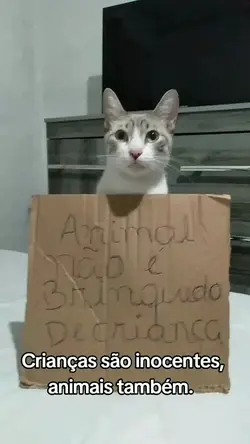 Animal!
não é
Brinquedo
De criança
Crianças são inocentes,
animais também.